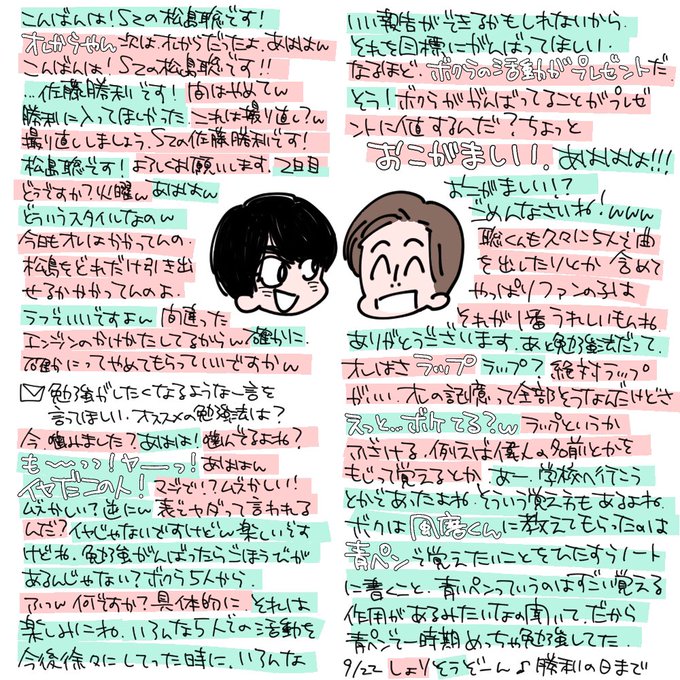 こんばんは！SZの松島聡です！
オレからやん 次はオレからだったよ。あははん
こんばんは！SZの松島聡です！！
…佐藤勝利です！間はやめてw
勝利に入ってほしかった これは撮り直し？w
撮り直ししましょう。SZの佐藤勝利です！
松島聡です！よろしくお願いします。2回目
どうですか？火曜w あははw
どういうスタイルなのw
今日もオレはかかってんの。
松島をどれだけ引き出
せるかかかってんのよ。
ラフでいいですよw 間違った
エンジンのかけかたしてるからw 確かに。
確かにってやめてもらっていいですかw
勉強がしたくなるような一言を
言ってほしい。オススメの勉強法は？
今、噛みました？あはは！噛んでるよね？
も〜〜っっ！ヤーーっ！あははw
イヤだこの人！マジで！？ムズかしい！
ムズかしい？逆にw 表でヤダって言われる
んだ？イヤじゃないですけどw 楽しいです
けどね。勉強がんばったらごほうびが
あるんじゃない？ボクら5人から。
ふっw 何ですか？具体的に。それは
楽しみにね。いろんな5人での活動を
今後徐々にしてった時に、いろんな
いい報告ができるかもしれないから。
それを目標にがんばってほしい。
なるほど。ボクらの活動がプレゼントだ。
そう！ボクらががんばってることがプレゼ
ントに値するんだ？ちょっと
おこがましい。あははは！！！
おこがましい！？
ごめんなさいね！www
聡くんも久々に5人で曲
を出したりとか 含めて
やっぱりファンの子は
それが1番うれしいもんね。
ありがとうございます。あと勉強法だって。
オレはさ ラップ ラップ？絶対ラップ
がいい。オレの記憶って全部そうなんだけどさ
えっと…ボケてる？w ラップというか
ふざける。例えば偉人の名前とかを
もじって覚えるとか。あー、学校へ行こう
とかであったよね。そういう覚え方もあるよね。
ボクは 風磨くん に教えてもらったのは
青ペン で覚えたいことをひたすらノート
に書くこと。青いペンっていうのはすごい覚える
作用があるみたいなの聞いて。だから
青ペンで一時期めっちゃ勉強してた。
9/22 しょり そうぞーん♪勝利の日まで